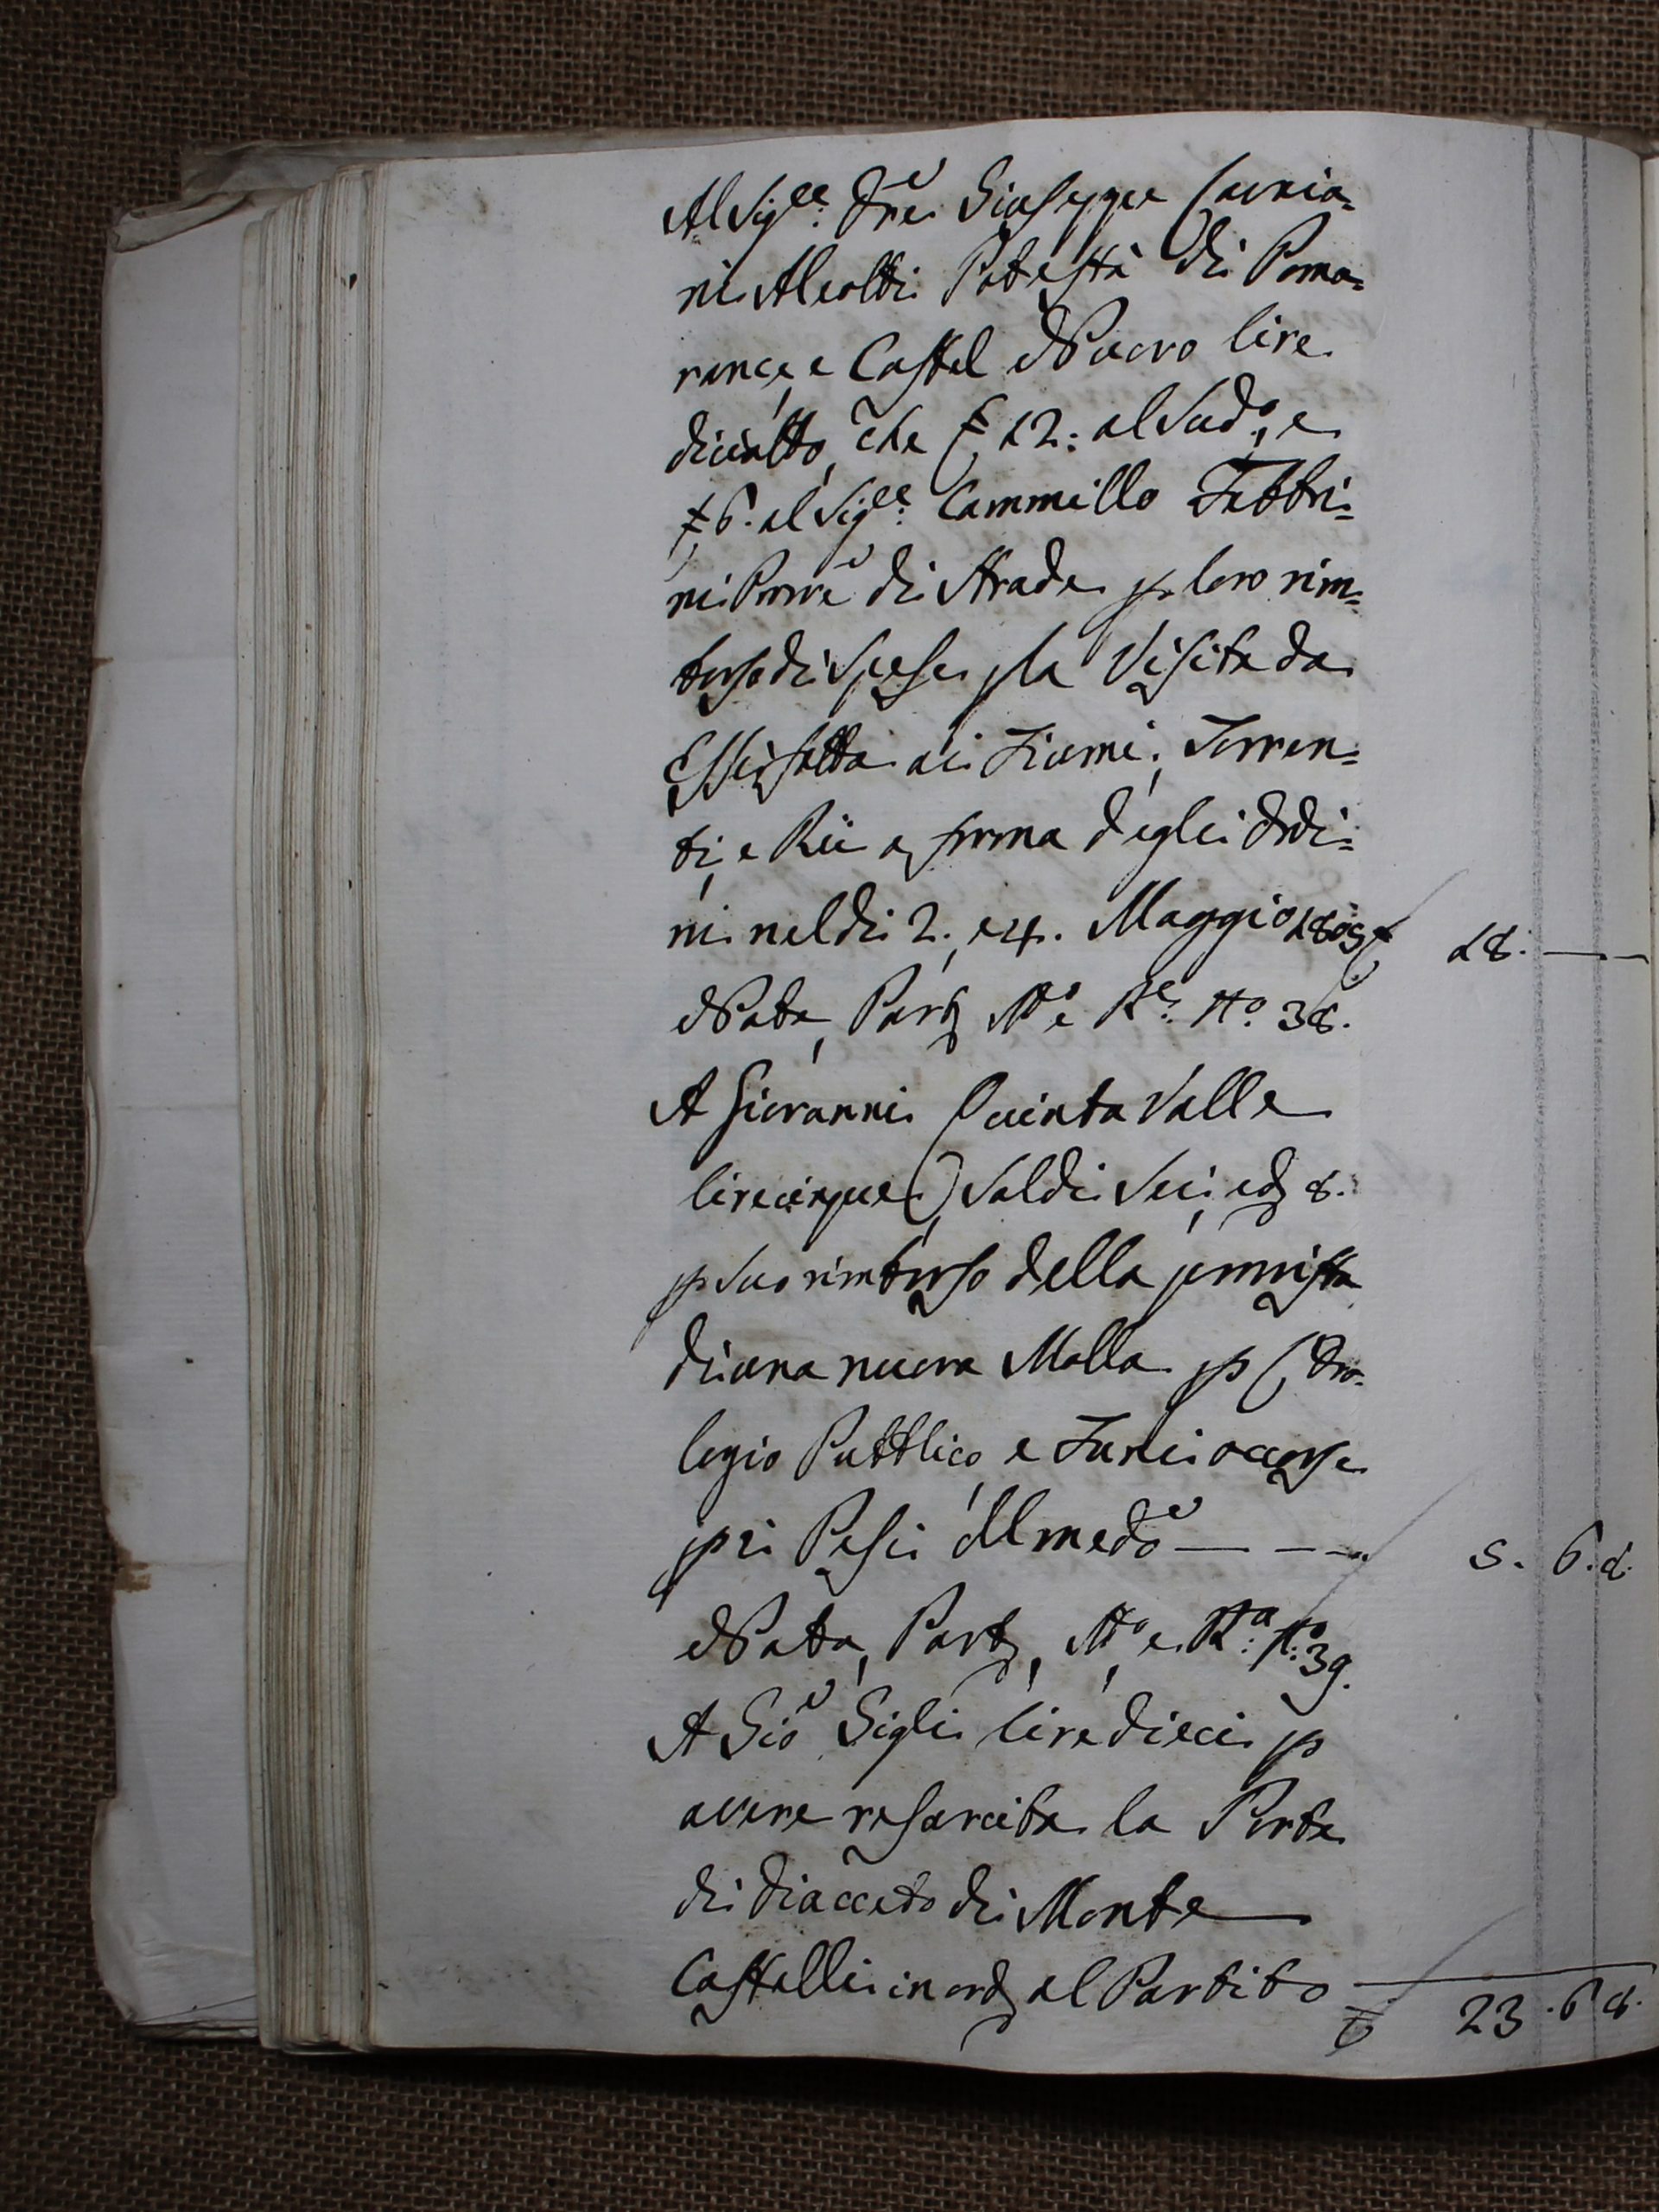 Al Sig.re Dre. Giuseppe Cavnia=
ni Alealdi Potestà di Poma=
rance, e Castel Nuovo lire
diciotto, che £ 12: al Sud.o, e
£ 6. al Sig.re Cammillo Fabbri=
ni Provre di Strade p. loro rim=
borso di Spese p la Visita da
Essi fatta ai Fiumi, Torren=
ti, e Rii a forma degli Ordi=
ni nel di 2. e 4. Maggio 1805 £ 18. —
Nota, Part M.o e R.a N.o 38.
A Giovanni Quinta Valle
lire cinque, Soldi Sei, e d 8.
p Suo rimborso della provvista
di una nuova Molla p l'Oro=
logio Pubblico, e Funi occorse
p i Pesi Al medo — — — 5. 6. 8.
Nota, Part, M.o e R.a N.o 39.
A Gio Sigli lire dieci p
avere resarcita la Porta
di Diacceto di Monte
Castelli in ord al Partito
£ 23. 6 8.